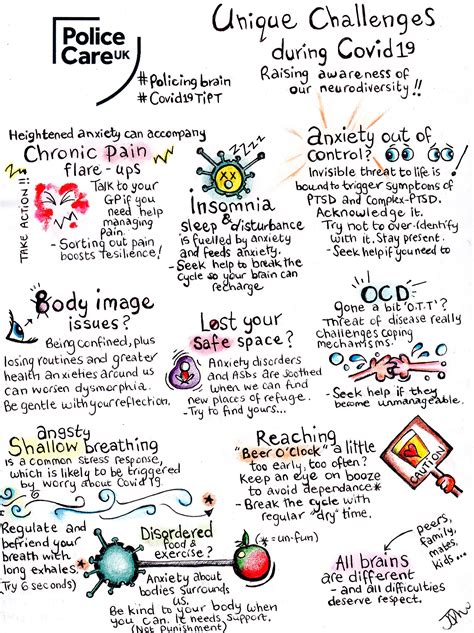 Police
Care UK
#Policingbrain
#Covid19TiPT
Unique Challenges
during Covid19
Raising awareness of
our neurodiversity!!
Heightened anxiety can accompany
Chronic Pain
flare-ups
TAKE ACTION!!
Talk to your
GP if you
need help
managing
pain.
- Sorting out pain
boosts resilience!
Insomnia
&
Sleep disturbance
is fuelled by anxiety
and feeds anxiety.
- Seek help to break the
cycle so your brain can
recharge
anxiety out of
control?
Invisible threat to life is
bound to trigger symptoms of
PTSD and Complex-PTSD.
Acknowledge it.
Try not to over-identify
with it. Stay present.
- Seek help if you need to
Body image
issues?
Being confined, plus
losing routines and greater
health anxieties around us
can worsen dysmorphia.
Be gentle with your reflection.
Lost your
Safe space?
Anxiety disorders
and ASDs are soothed
when we can find
new places of refuge.
- Try to find yours...
OCD
gone a bit 'O.T.T'?
Threat of disease really
challenges coping
mechanisms.
- Seek help if they
become unmanageable.
angsty
Shallow breathing
is a common stress response,
which is likely to be triggered
by worry about Covid 19.
Regulate and
befriend your
breath with
long exhales.
(Try 6 seconds)
Reaching
"Beer O'Clock" a little
too early, too often?
Keep an eye on booze
to avoid dependance*
- Break the cycle with
regular "dry" time.
(* = un-fun)
CAUTION
Disordered
food &
exercise?
Anxiety about
bodies surrounds
us.
Be kind to your body when
you can. It needs support.
(Not Punishment)
peers,
family,
mates,
kids...
All brains
are different
- and all difficulties
deserve respect.